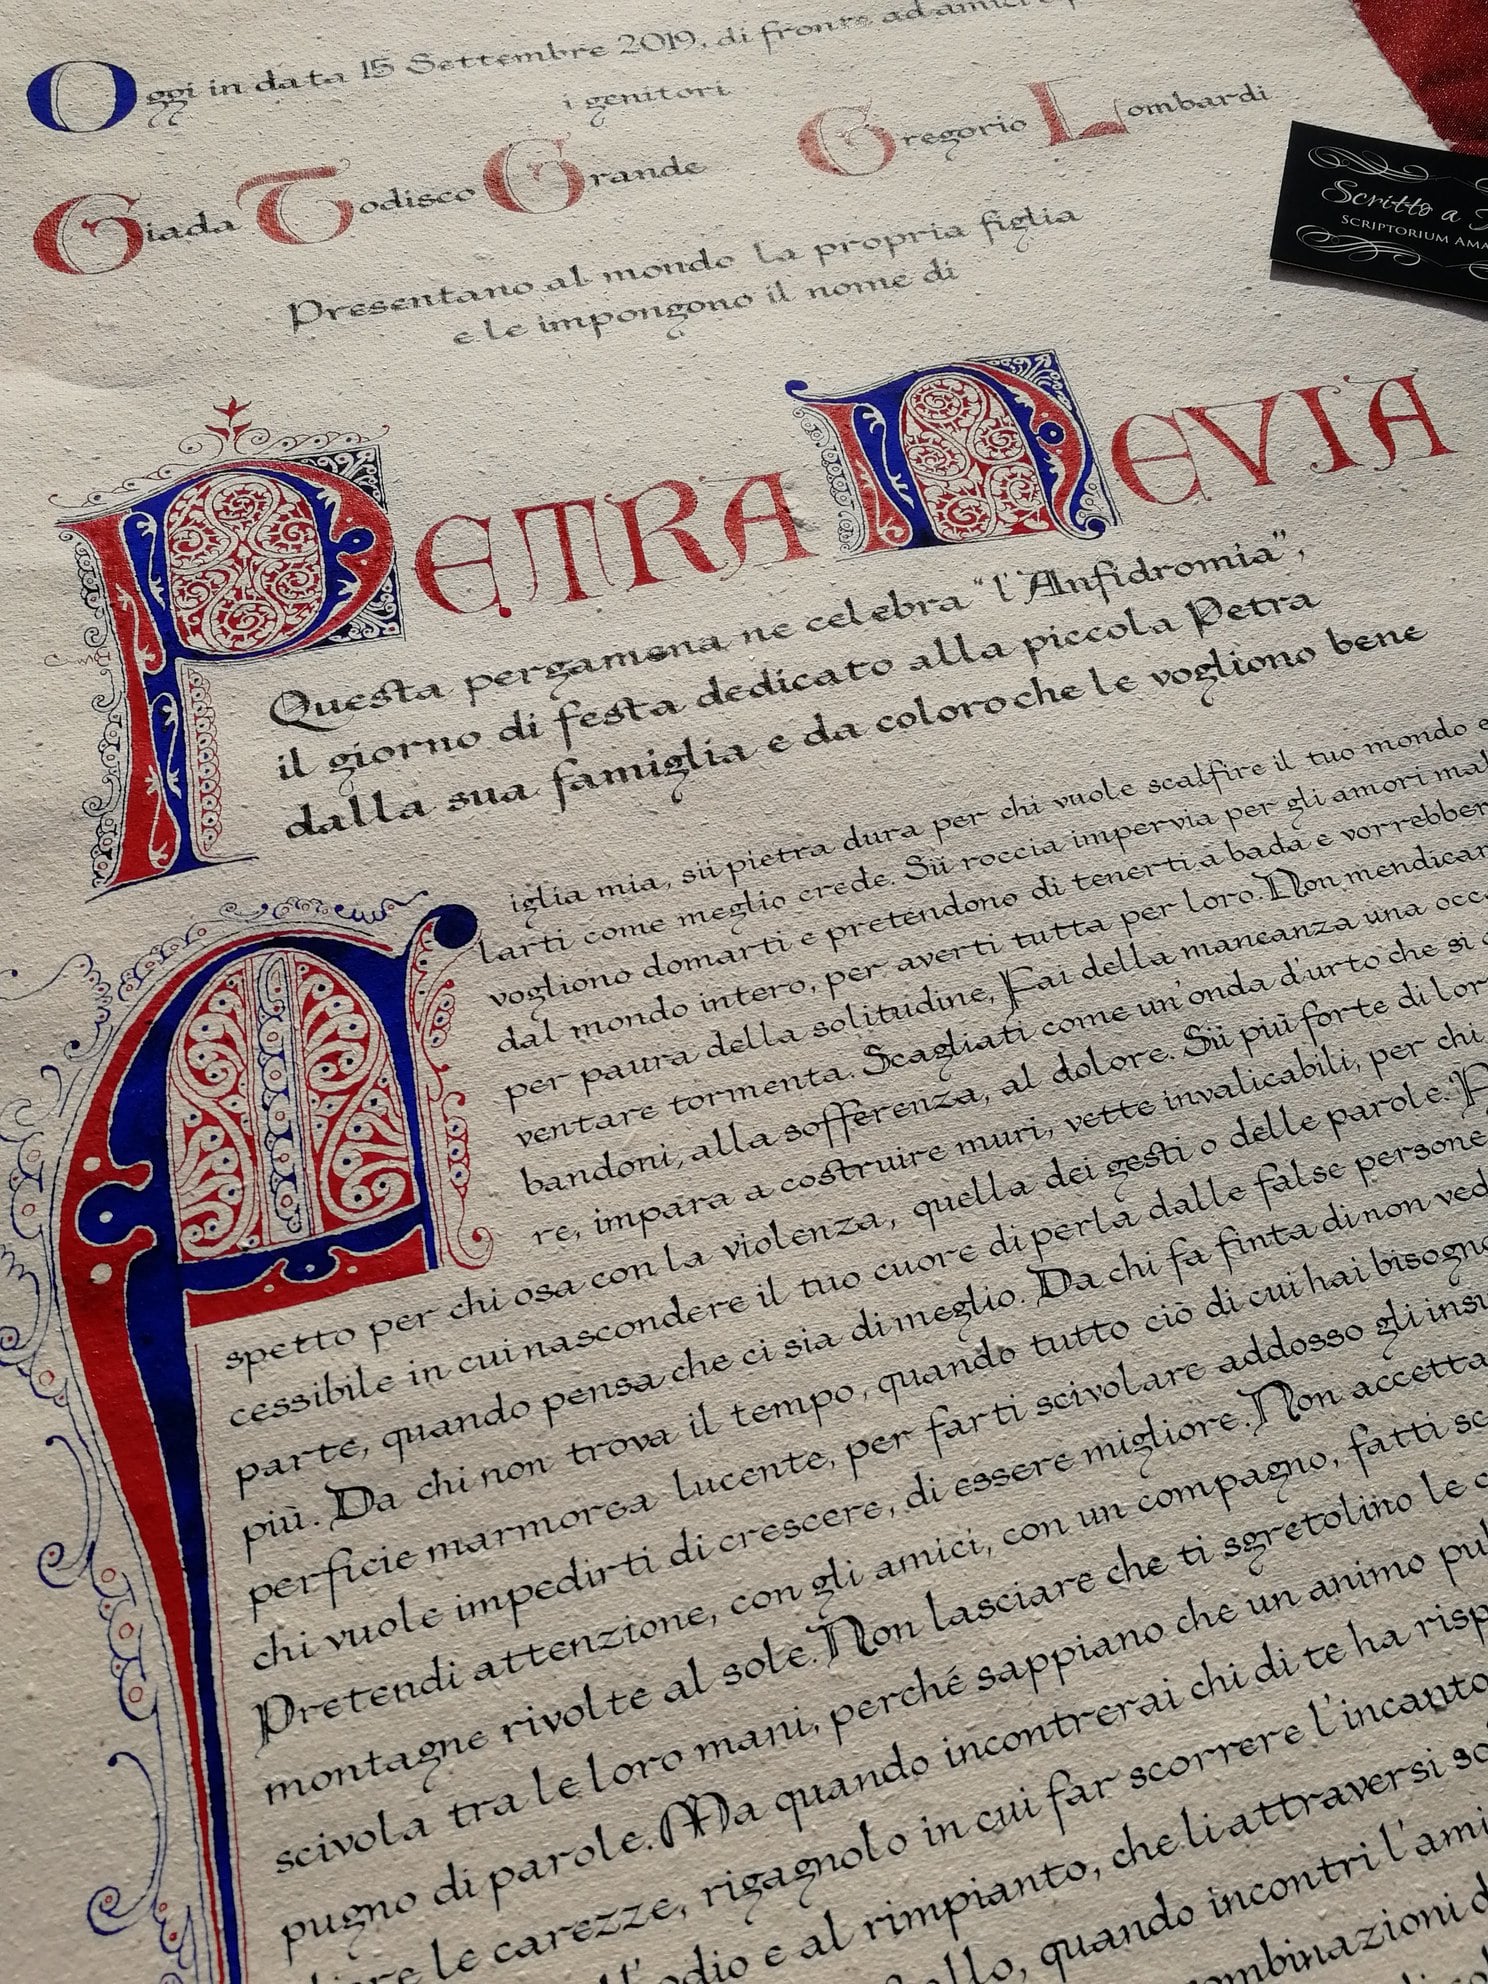 Oggi in data 15 Settembre 2019, di fronte ad amici e
i genitori
Giada Todisco Grande Gregorio Lombardi
Presentano al mondo la propria figlia
e le impongono il nome di
PETRA NEVIA
Questa pergamena ne celebra "l'Anfidromia",
il giorno di festa dedicato alla piccola Petra
dalla sua famiglia e da coloro che le vogliono bene
Figlia mia, sii pietra dura per chi vuole scalfire il tuo mondo e
larti come meglio crede. Sii roccia impervia per gli amori mal
vogliono domarti e pretendono di tenerti a bada e vorrebber
dal mondo intero, per averti tutta per loro. Non mendicar
per paura della solitudine, Fai della mancanza una occ
ventare tormenta. Scagliati come un'onda d'urto che si
bandoni, alla sofferenza, al dolore. Sii più forte di lor
re, impara a costruire muri, vette invalicabili, per chi
spetto per chi osa con la violenza, quella dei gesti o delle parole.
cessibile in cui nascondere il tuo cuore di perla dalle false persone
parte, quando pensa che ci sia di meglio. Da chi fa finta di non ved
più. Da chi non trova il tempo, quando tutto ciò di cui hai bisogno
perficie marmorea lucente, per farti scivolare addosso gli insu
chi vuole impedirti di crescere, di essere migliore. Non accetta
Pretendi attenzione, con gli amici, con un compagno, fatti sc
montagne rivolte al sole. Non lasciare che ti sgretolino le
scivola tra le loro mani, perché sappiano che un animo pu
pugno di parole. Ma quando incontrerai chi di te ha risp
le carezze, rigagnolo in cui far scorrere l'incanto
odio e al rimpianto, che li attraversi so
quando incontri l'ami
mbinazioni d
Scritto a
SCRIPTORIUM AMA